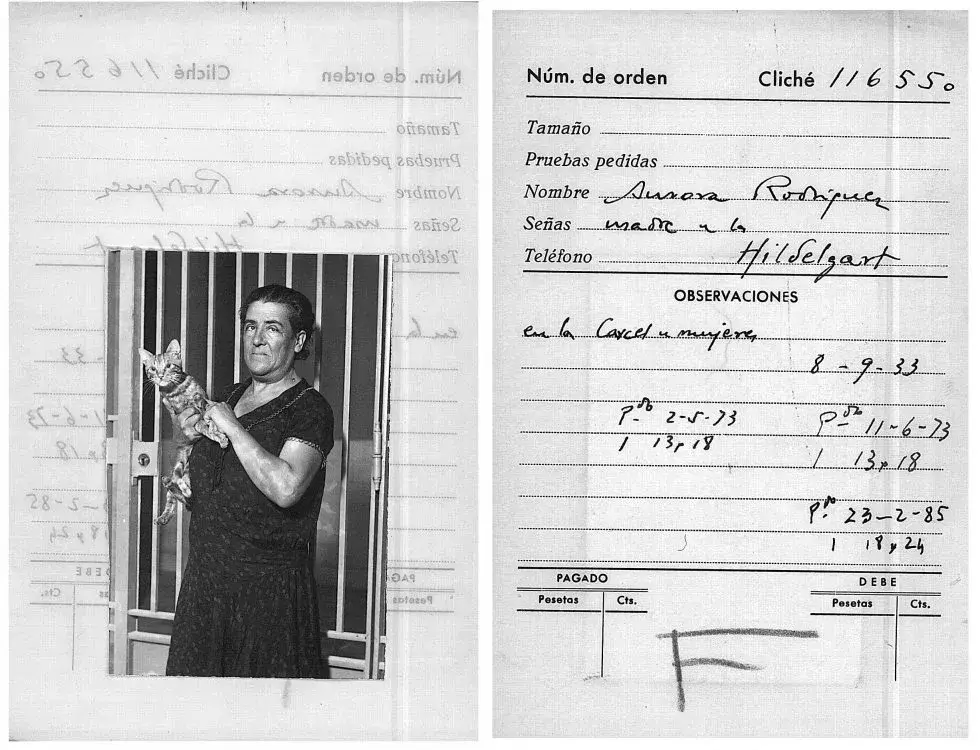 Núm. de orden Cliché 116550
Tamaño
Pruebas pedidas
Nombre Aurora Rodriguez
Señas madre de la
Teléfono Hildelgart
OBSERVACIONES
en la Carcel de mujeres
8-9-33
2-5-73 11-6-73
1 13x18 1 13x18
23-2-85
1 18x24
PAGADO DEBE
Pesetas Cts. Pesetas Cts.
F